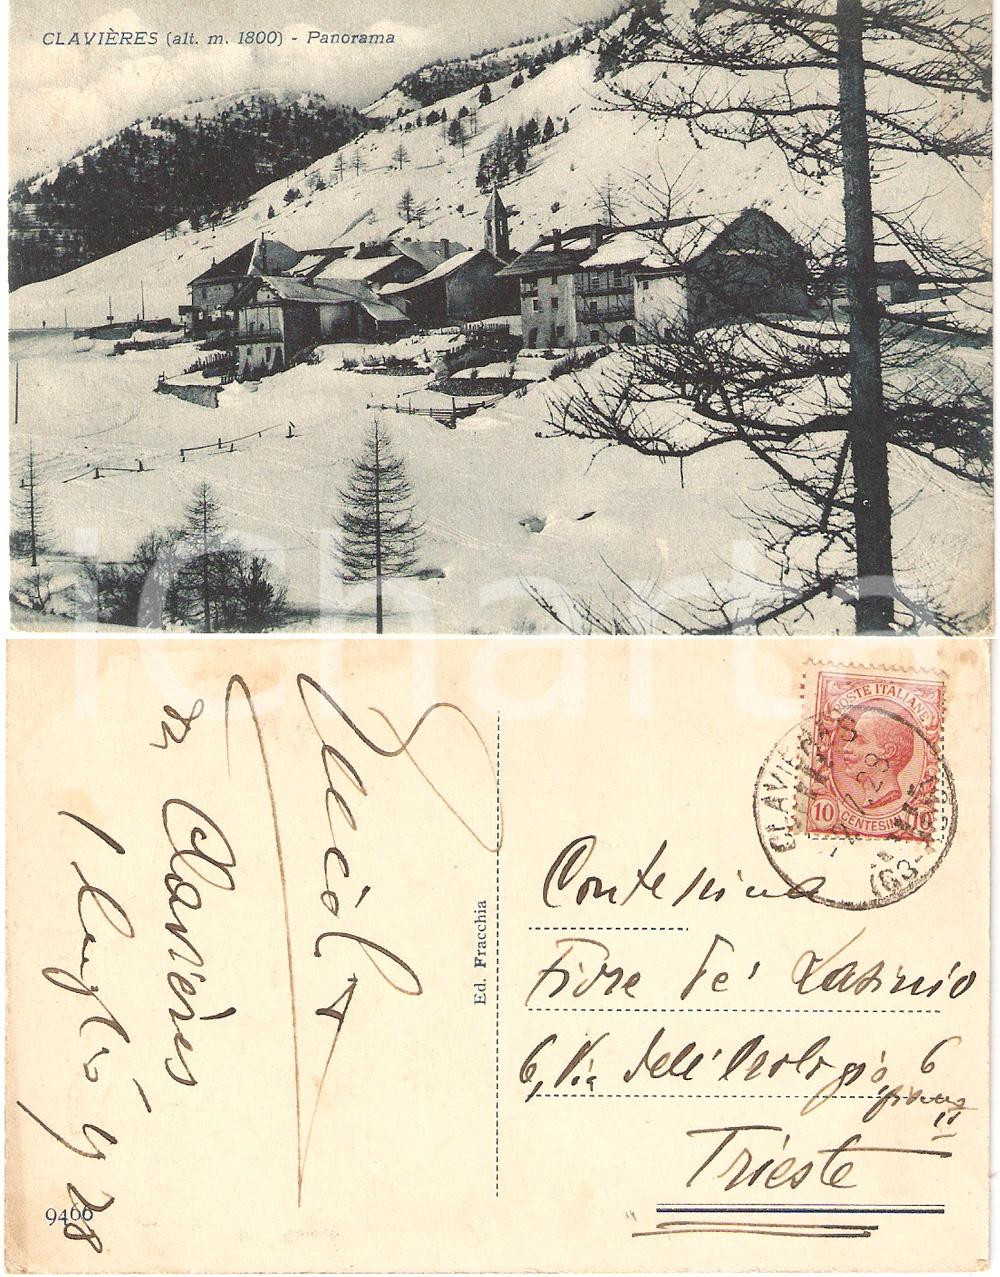 CLAVIÈRES (alt. m. 1800) - Panorama
iCharta
POSTE ITALIANE
10 CENTESIMI 10
CLAVIERES
28
Contessina
Fiore De' Lasinio
6, Via dell'Orologio, 6
II
Trieste
Ed. Fracchia
da Clavières
1 luglio 928
9466